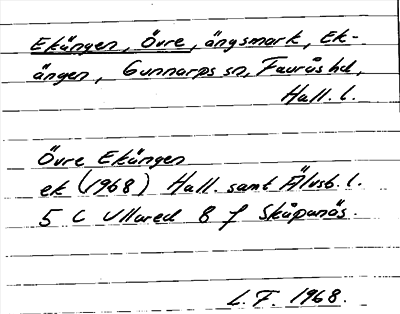 Ekängen, Övre, ängsmark, Ek-
ängen, Gunnarps sn, Faurås hd,
Hall. l.
Övre Ekängen
ek (1968) Hall. samt Älvsb. l.
5 C Ullared 8 f Skåpanäs.
L.F. 1968.